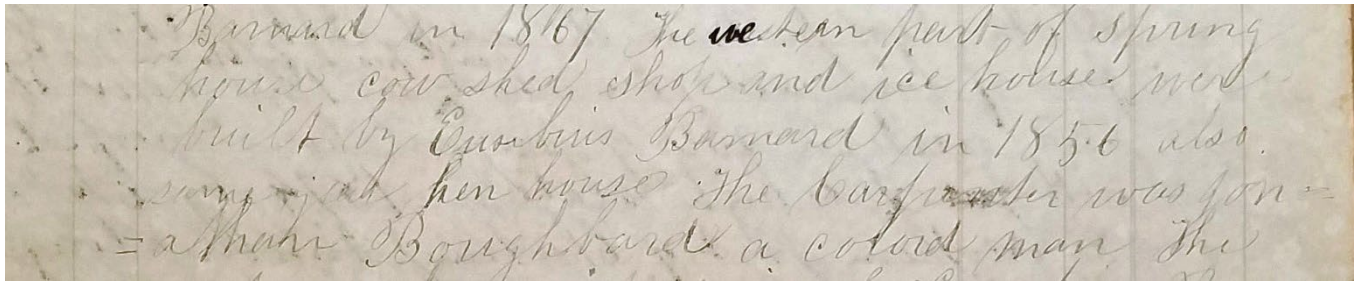 Barnard in 1867 The western part of spring
house cow shed shop and ice house were
built by Eusebius Barnard in 1856 also
same year hen house The Carpenter was Jon=
=athan Boughbard a colord man The